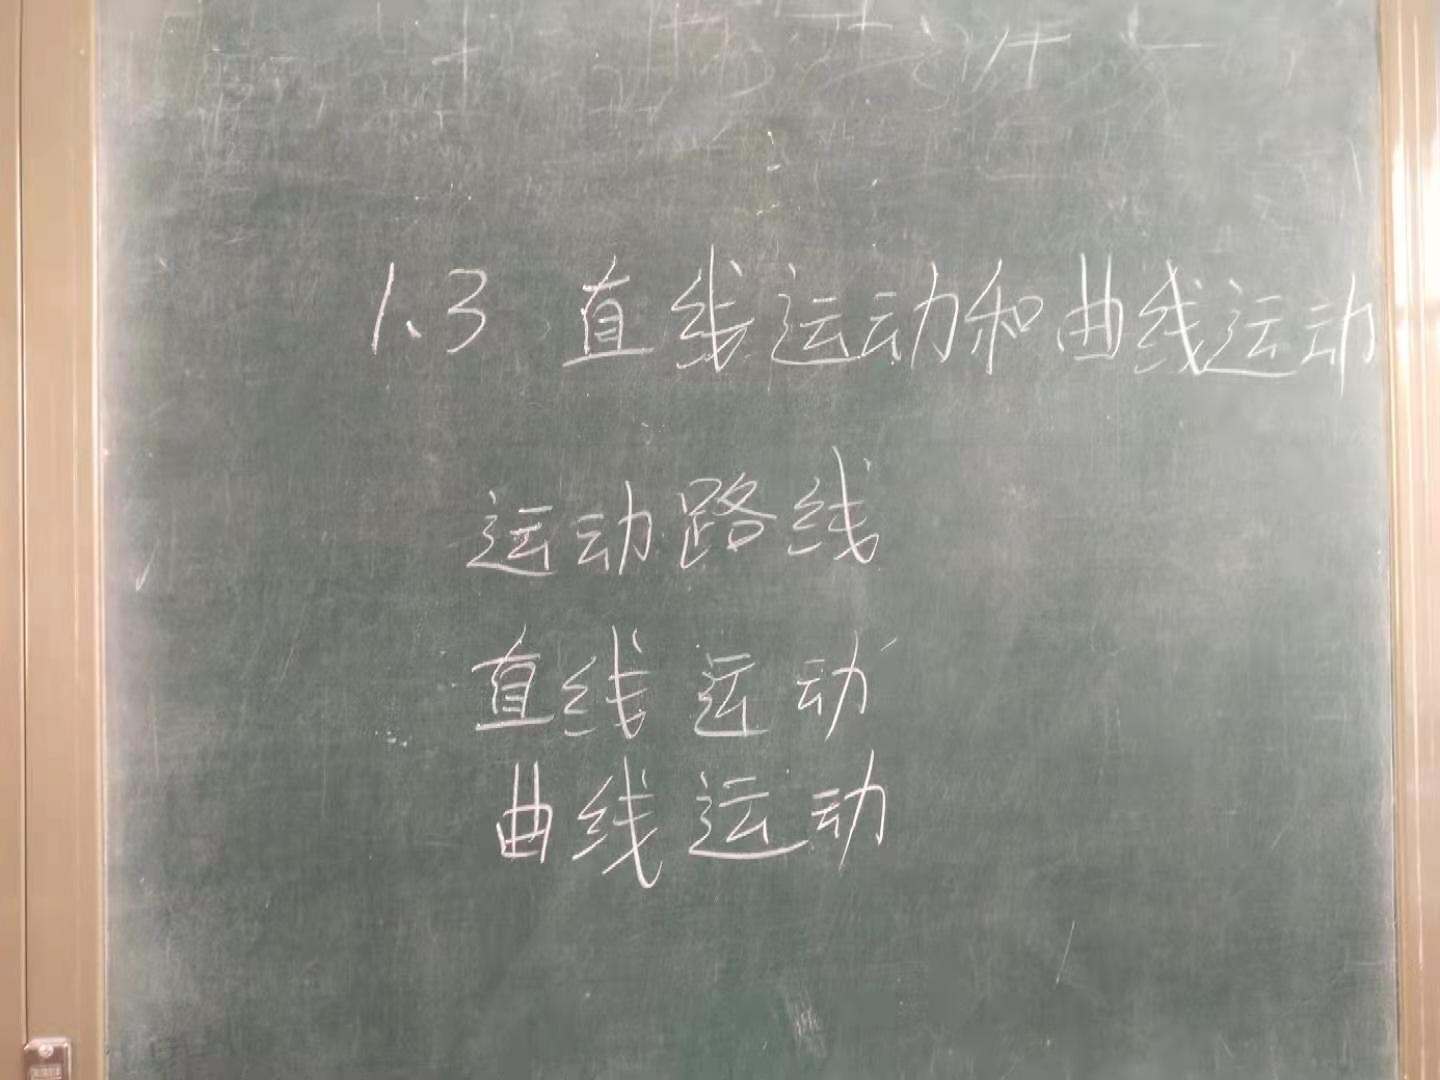 1.3 直线运动和曲线运动
运动路线
直线运动
曲线运动